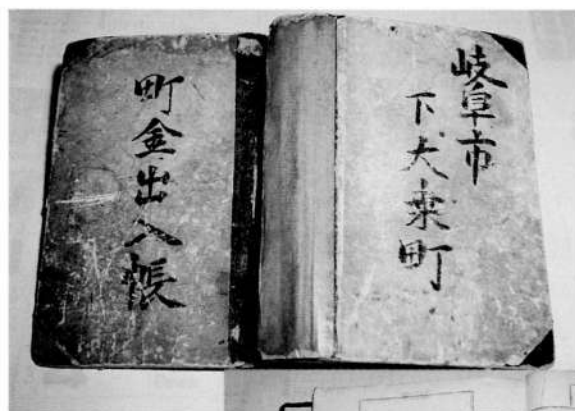 岐阜市
下大桒町
町金出入帳